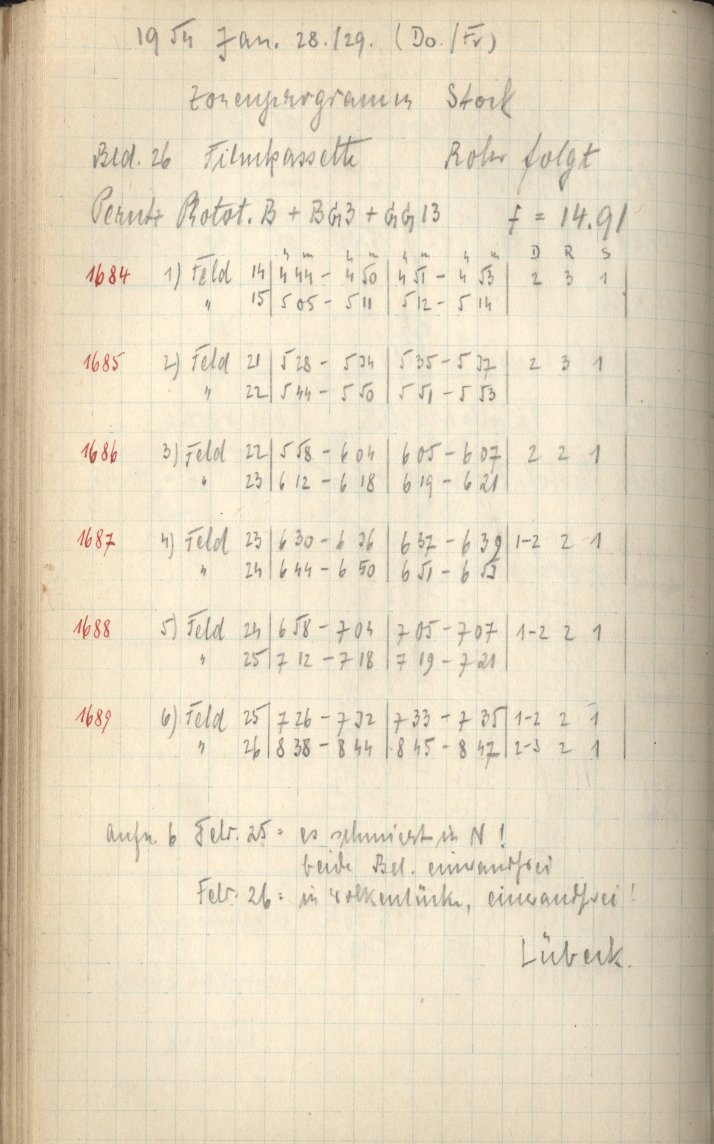 1954 Jan. 28./29. (Do./Fr)
Zonenprogramm Stock
Bld. 26 Filmkassette Rohr folgt
Perutz Rotot. B + BG3 + GG13 f = 14.91
h m h m h m h m D R S
1684 1) Feld 14 | 4 44 - 4 50 | 4 51 - 4 53 | 2 3 1
" 15 | 5 05 - 5 11 | 5 12 - 5 14
1685 2) Feld 21 | 5 28 - 5 34 | 5 35 - 5 37 | 2 3 1
" 22 | 5 44 - 5 50 | 5 51 - 5 53
1686 3) Feld 22 | 5 58 - 6 04 | 6 05 - 6 07 | 2 2 1
" 23 | 6 12 - 6 18 | 6 19 - 6 21
1687 4) Feld 23 | 6 30 - 6 36 | 6 37 - 6 39 | 1-2 2 1
" 24 | 6 44 - 6 50 | 6 51 - 6 53
1688 5) Feld 24 | 6 58 - 7 04 | 7 05 - 7 07 | 1-2 2 1
" 25 | 7 12 - 7 18 | 7 19 - 7 21
1689 6) Feld 25 | 7 26 - 7 32 | 7 33 - 7 35 | 1-2 2 1
" 26 | 8 38 - 8 44 | 8 45 - 8 47 | 2-3 2 1
Aufn 6 25: es schmiert in N!
beide Bel. einwandfrei
26: in Wolkenlücke, einwandfrei!
Lübeck.